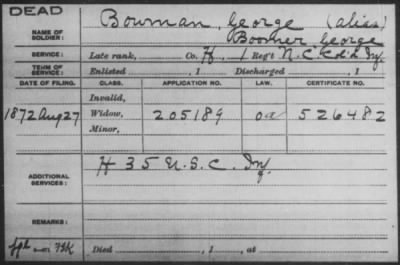 DEAD
NAME OF SOLDIER: Bowman, George (alias)
Boomer George
SERVICE: Late rank, Co. H, 1 Reg't N.C. Col'd Inf.
TERM OF SERVICE: Enlisted , 1 Discharged , 1
DATE OF FILING. CLASS. APPLICATION NO. LAW. CERTIFICATE NO.
Invalid,
1872 Aug 27 Widow, 205189 526482
Minor,
ADDITIONAL SERVICES: H 35 U.S.C. Inf.
REMARKS:
Died , 1 , at